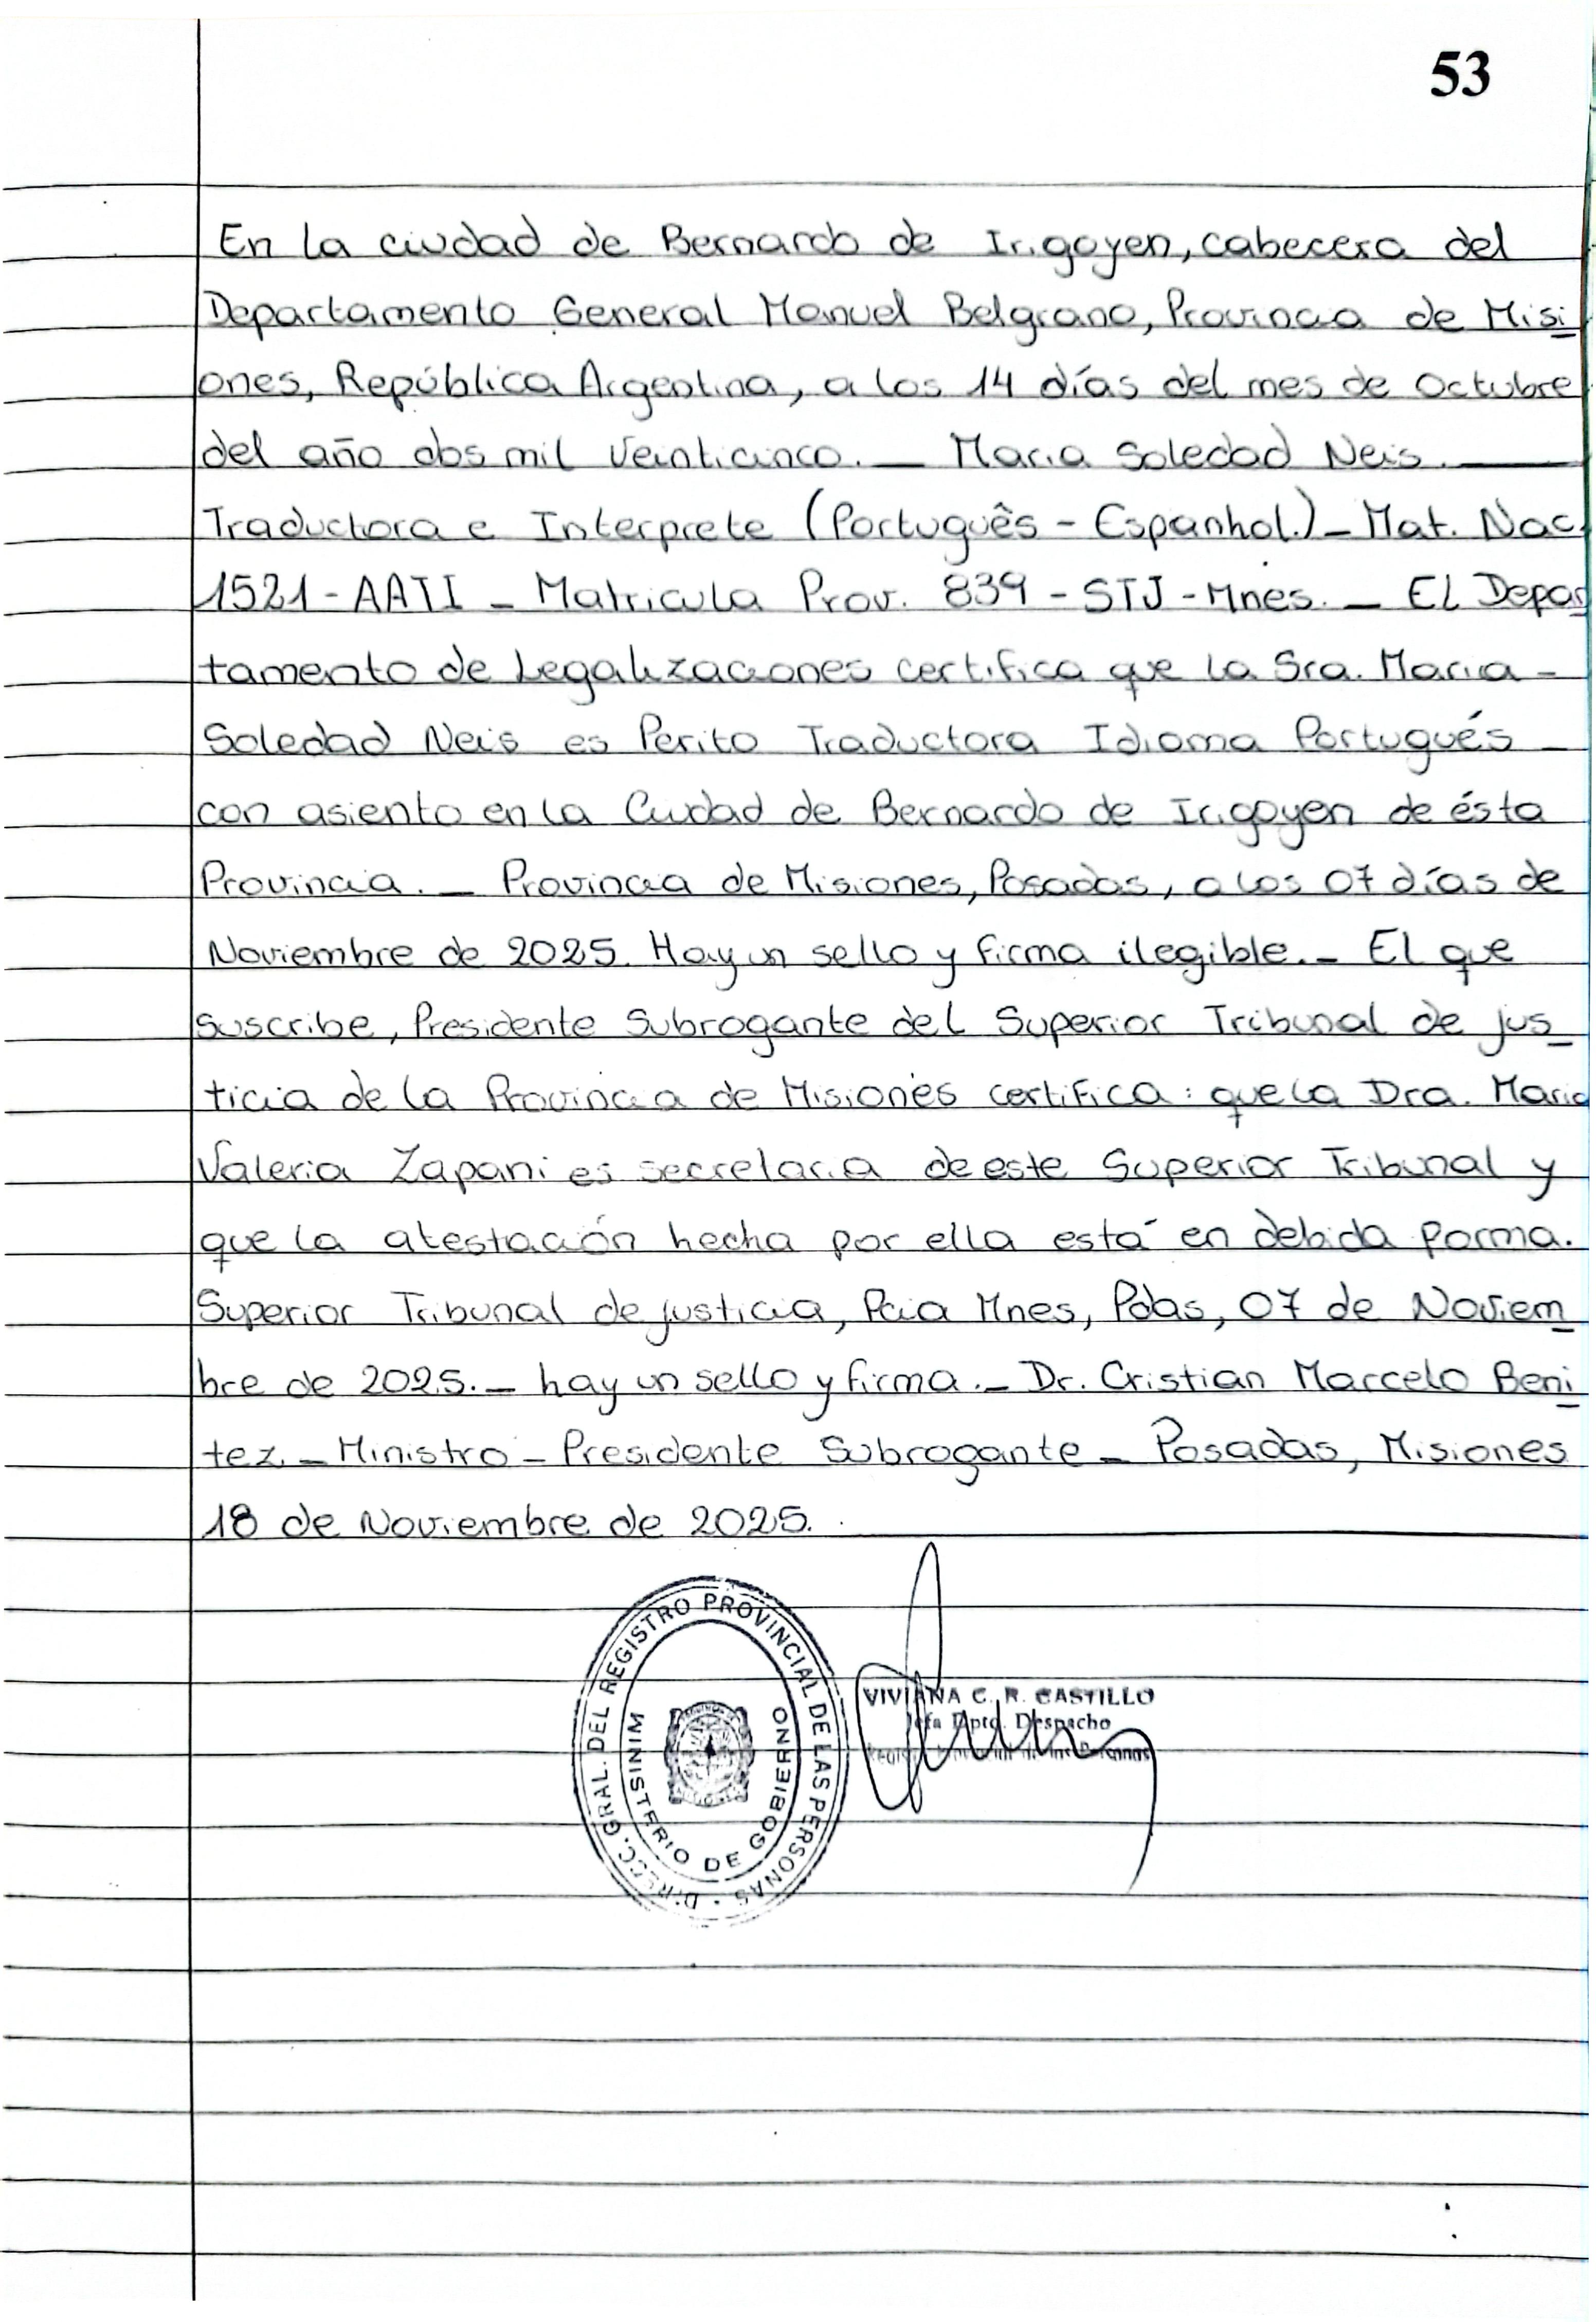 53
En la ciudad de Bernardo de Irigoyen, cabecera del
Departamento General Manuel Belgrano, Provincia de Misi
ones, República Argentina, a los 14 días del mes de Octubre
del año dos mil Veinticinco. _ Maria Soledad Neis.
Traductora e Interprete (Português - Espanhol.) _ Mat. Nac.
1521 - AATI _ Matricula Prov. 839 - STJ - Mnes. _ El Depar
tamento de Legalizaciones certifica que la Sra. Maria -
Soledad Neis es Perito Traductora Idioma Portugués _
con asiento en la Ciudad de Bernardo de Irigoyen de ésta
Provincia. _ Provincia de Misiones, Posadas, a los 07 días de
Noviembre de 2025. Hay un sello y firma ilegible. _ El que
suscribe, Presidente Subrogante del Superior Tribunal de jus_
ticia de la Provincia de Misiones certifica: que la Dra. Maria
Valeria Zapani es secretaria de este Superior Tribunal y
que la atestación hecha por ella está en debida forma.
Superior Tribunal de justicia, Pcia Mnes, Pdas, 07 de Noviem_
bre de 2025. _ hay un sello y firma. _ Dr. Cristian Marcelo Beni
tez. _ Ministro - Presidente Subrogante _ Posadas, Misiones
18 de Noviembre de 2025.
DIRECC. GRAL. DEL REGISTRO PROVINCIAL DE LAS PERSONAS
MINISTERIO DE GOBIERNO
VIVIANA C. R. CASTILLO
Jefa Dpto. Despacho